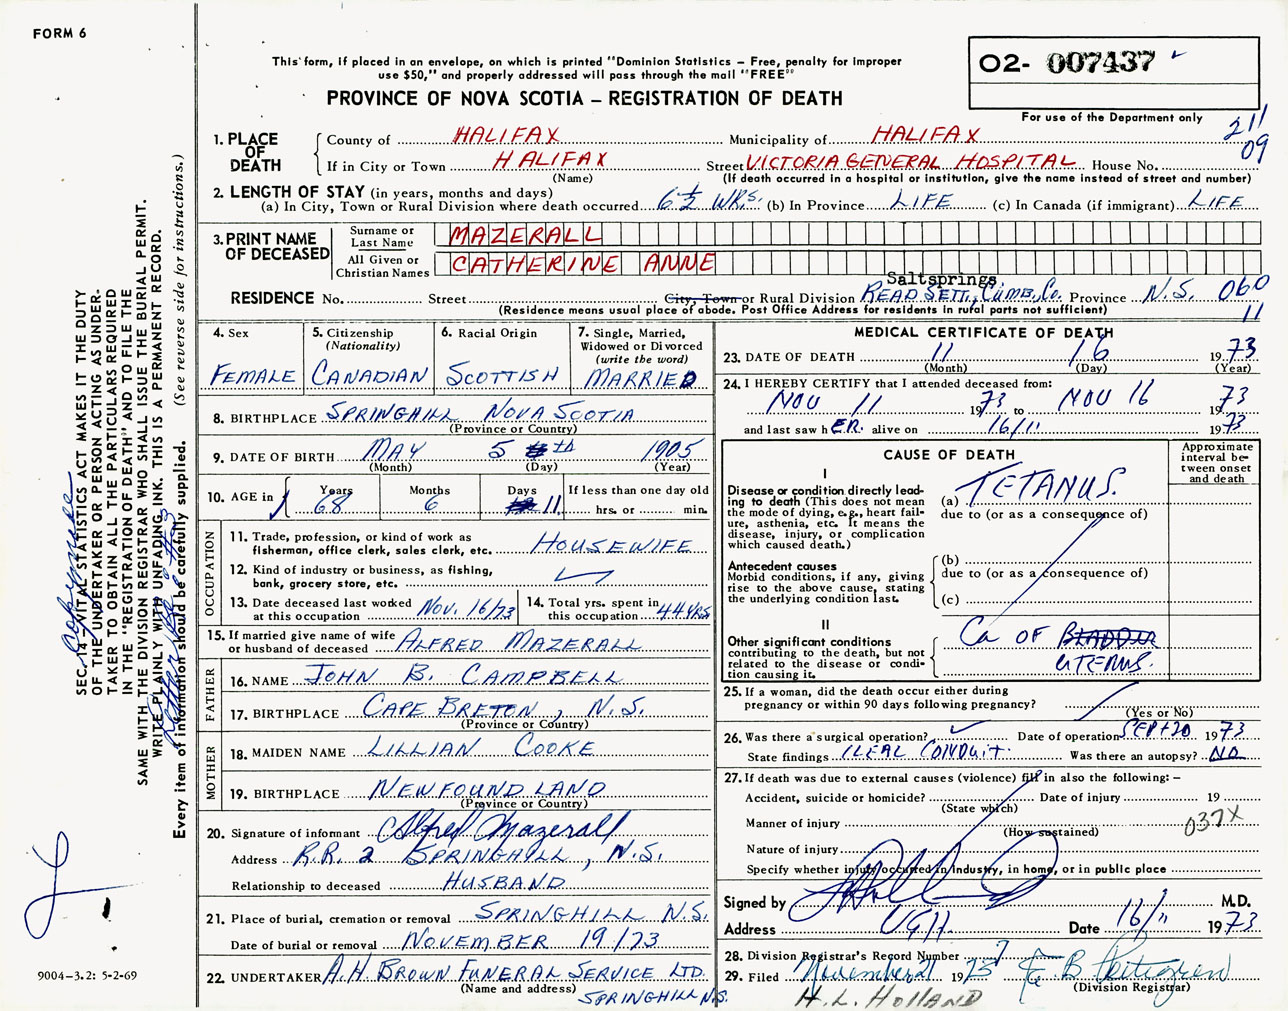 FORM 6
This form, if placed in an envelope, on which is printed "Dominion Statistics – Free, penalty for improper
use $50," and properly addressed will pass through the mail "FREE"
O2- 007437
PROVINCE OF NOVA SCOTIA – REGISTRATION OF DEATH
For use of the Department only
211
09
1. PLACE OF DEATH
County of HALIFAX Municipality of HALIFAX
If in City or Town HALIFAX Street VICTORIA GENERAL HOSPITAL House No.
(Name) (If death occurred in a hospital or institution, give the name instead of street and number)
2. LENGTH OF STAY (in years, months and days)
(a) In City, Town or Rural Division where death occurred 6½ WKS. (b) In Province LIFE (c) In Canada (if immigrant) LIFE
3. PRINT NAME OF DECEASED
Surname or Last Name MAZERALL
All Given or Christian Names CATHERINE ANNE
Saltsprings
RESIDENCE No. Street City, Town or Rural Division READ SETT., CUMB. CO. Province N.S. 060
(Residence means usual place of abode. Post Office Address for residents in rural parts not sufficient) 11
4. Sex
FEMALE
5. Citizenship
(Nationality)
CANADIAN
6. Racial Origin
SCOTTISH
7. Single, Married,
Widowed or Divorced
(write the word)
MARRIED
8. BIRTHPLACE SPRINGHILL NOVA SCOTIA
(Province or Country)
9. DATE OF BIRTH MAY 5 th 1905
(Month) (Day) (Year)
10. AGE in
Years 68
Months 6
Days 11
If less than one day old
hrs. or min.
OCCUPATION
11. Trade, profession, or kind of work as
fisherman, office clerk, sales clerk, etc. HOUSEWIFE
12. Kind of industry or business, as fishing,
bank, grocery store, etc.
13. Date deceased last worked
at this occupation Nov. 16/73
14. Total yrs. spent in
this occupation 44 YRS
15. If married give name of wife
or husband of deceased ALFRED MAZERALL
FATHER
16. NAME JOHN B. CAMPBELL
17. BIRTHPLACE CAPE BRETON, N.S.
(Province or Country)
MOTHER
18. MAIDEN NAME LILLIAN COOKE
19. BIRTHPLACE NEWFOUNDLAND
(Province or Country)
20. Signature of informant Alfred Mazerall
Address R.R. 2 SPRINGHILL, N.S.
Relationship to deceased HUSBAND
21. Place of burial, cremation or removal SPRINGHILL N.S.
Date of burial or removal NOVEMBER 19/73
22. UNDERTAKER A.H. BROWN FUNERAL SERVICE LTD.
(Name and address) SPRINGHILL N.S.
MEDICAL CERTIFICATE OF DEATH
23. DATE OF DEATH 11 16 1973
(Month) (Day) (Year)
24. I HEREBY CERTIFY that I attended deceased from:
NOV 11 1973 to NOV 16 1973
and last saw hER alive on 16/11 1973
CAUSE OF DEATH
Approximate
interval be-
tween onset
and death
I
Disease or condition directly lead-
ing to death (This does not mean
the mode of dying, e.g., heart fail-
ure, asthenia, etc. It means the
disease, injury, or complication
which caused death.)
(a) TETANUS.
due to (or as a consequence of)
Antecedent causes
Morbid conditions, if any, giving
rise to the above cause, stating
the underlying condition last.
(b)
due to (or as a consequence of)
(c)
II
Other significant conditions
contributing to the death, but not
related to the disease or condi-
tion causing it.
Ca OF BLADDER
UTERUS.
25. If a woman, did the death occur either during
pregnancy or within 90 days following pregnancy?
(Yes or No)
26. Was there a surgical operation? Date of operation SEPT 20 1973
State findings ILEAL CONDUIT. Was there an autopsy? NO
27. If death was due to external causes (violence) fill in also the following: –
Accident, suicide or homicide? Date of injury 19
(State which)
Manner of injury 037X
(How sustained)
Nature of injury
Specify whether injury occurred in Industry, in home, or in public place
Signed by M.D.
Address VGH Date 16/11 1973
28. Division Registrar's Record Number
29. Filed November 21 1973
(Division Registrar)
H.L. HOLLAND
SEC. 14–VITAL STATISTICS ACT MAKES IT THE DUTY
OF THE UNDERTAKER OR PERSON ACTING AS UNDER-
TAKER TO OBTAIN ALL THE PARTICULARS REQUIRED
IN THE "REGISTRATION OF DEATH" AND TO FILE THE
SAME WITH THE DIVISION REGISTRAR WHO SHALL ISSUE THE BURIAL PERMIT.
WRITE PLAINLY WITH UNFADING INK. THIS IS A PERMANENT RECORD.
Every item of information should be carefully supplied. (See reverse side for instructions.)
9004–3.2: 5-2-69